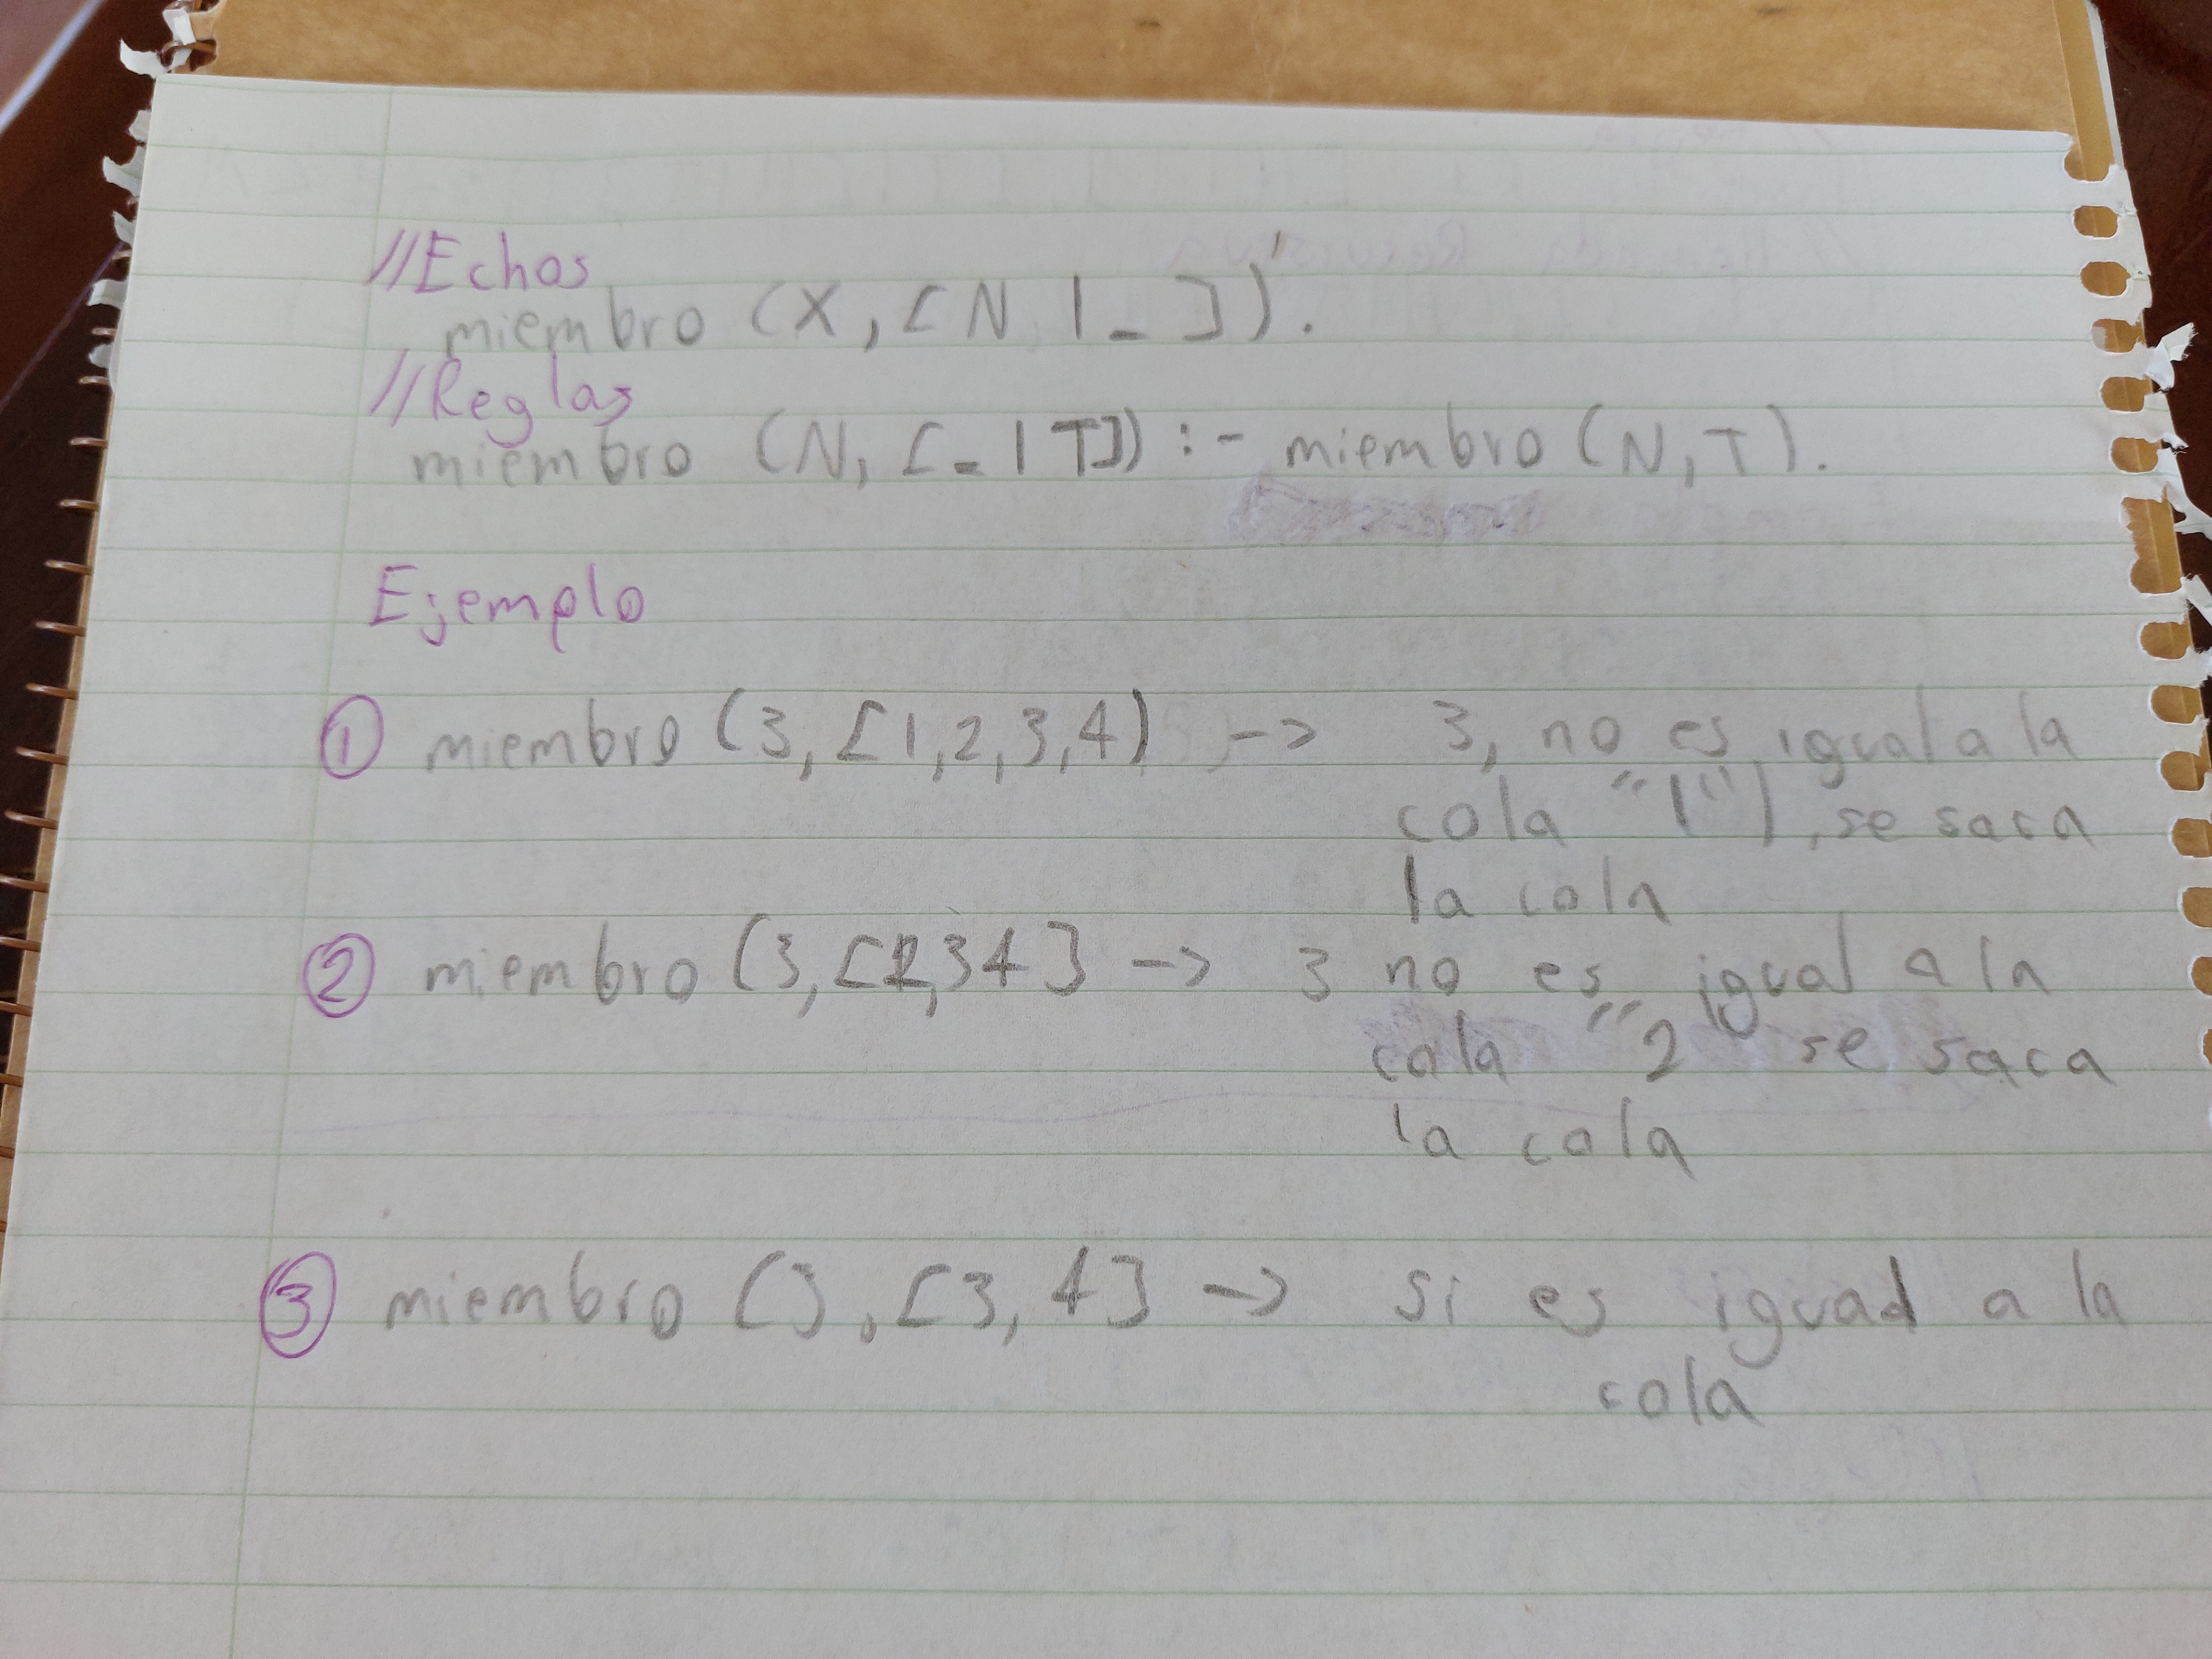 //Echos
miembro (X, [N | _ ]).
//Reglas
miembro (N, [_ | T]) :- miembro (N, T).
Ejemplo
① miembro (3, [1,2,3,4) -> 3, no es igual a la
cola "1"), se saca
la cola
② miembro (3, [2,34] -> 3 no es igual a la
cola "2 se saca
la cola
③ miembro (3, [3, 4] -> si es igual a la
cola